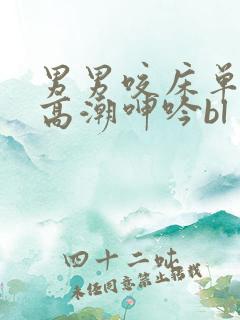 男男咬床单
高潮呻吟bl
四十二吆
未经同意禁止转载